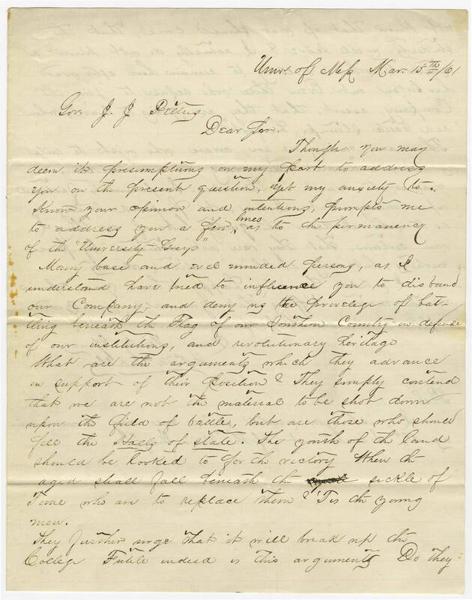 Univ. of Miss Mar. 15th/61
Gov. J. J. Pettus
Dear Gov.
Though you may
deem it presumptuous on my part to address
you on the present question, yet my anxiety to
know your opinion and intentions, prompts me
to address you a few lines, as to the permanency
of the "University Greys"
Many base and evil minded persons, as I
understand have tried to influence you to disband
our Company, and deny us the privilege of bat-
tling beneath the Flag of our Southern Country in defense
of our institutions, and revolutionary heritage
What are the arguments which they advance
in support of their position? They simply contend
that we are not the material to be shot down
upon the field of battle, but are those who should
fill the of State. The youth of the land
should be looked to for the victory. When the
aged shall fall beneath the sickle of
Time who are to replace them? 'Tis the young
men.
They further urge that it will break up the
College Futile indeed is this argument. Do they